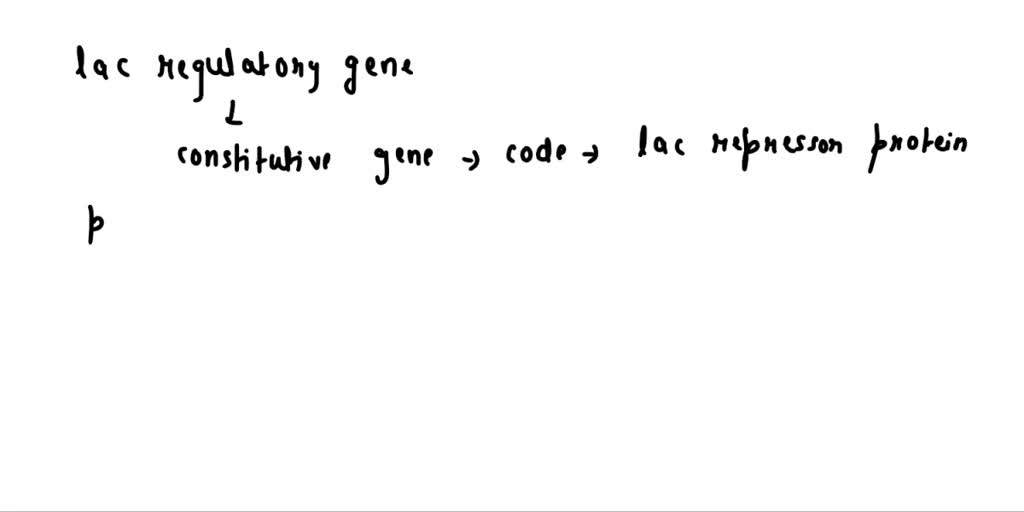 lac regulatory gene
↓
constitutive gene → code → lac repressor protein
p